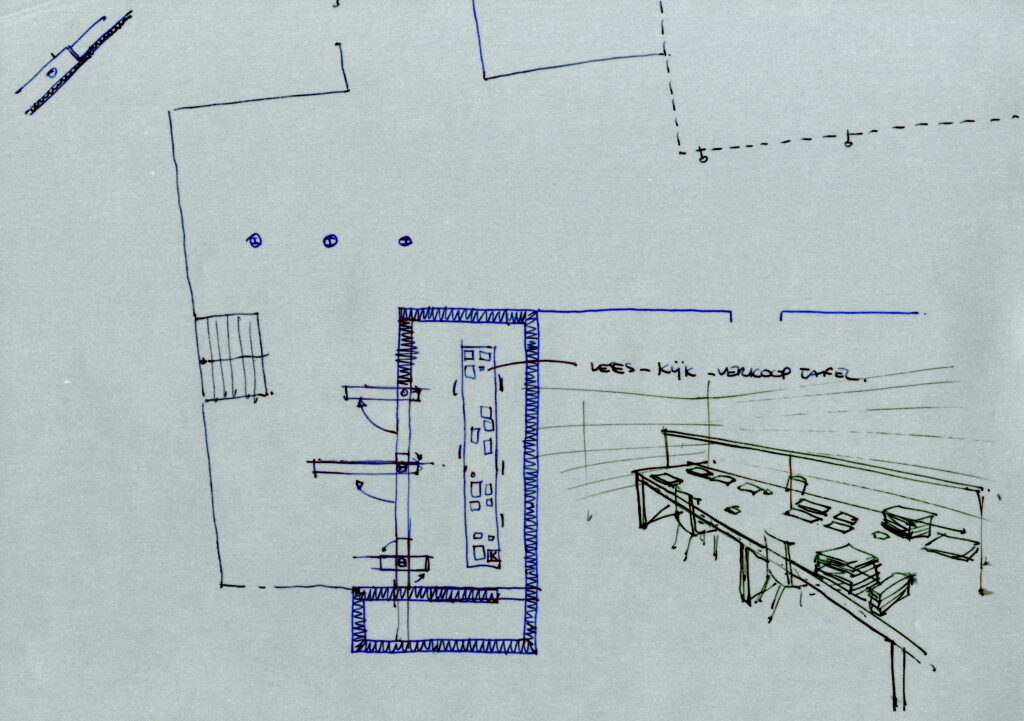 LEES - KIJK - VERKOOP TAFEL.
K